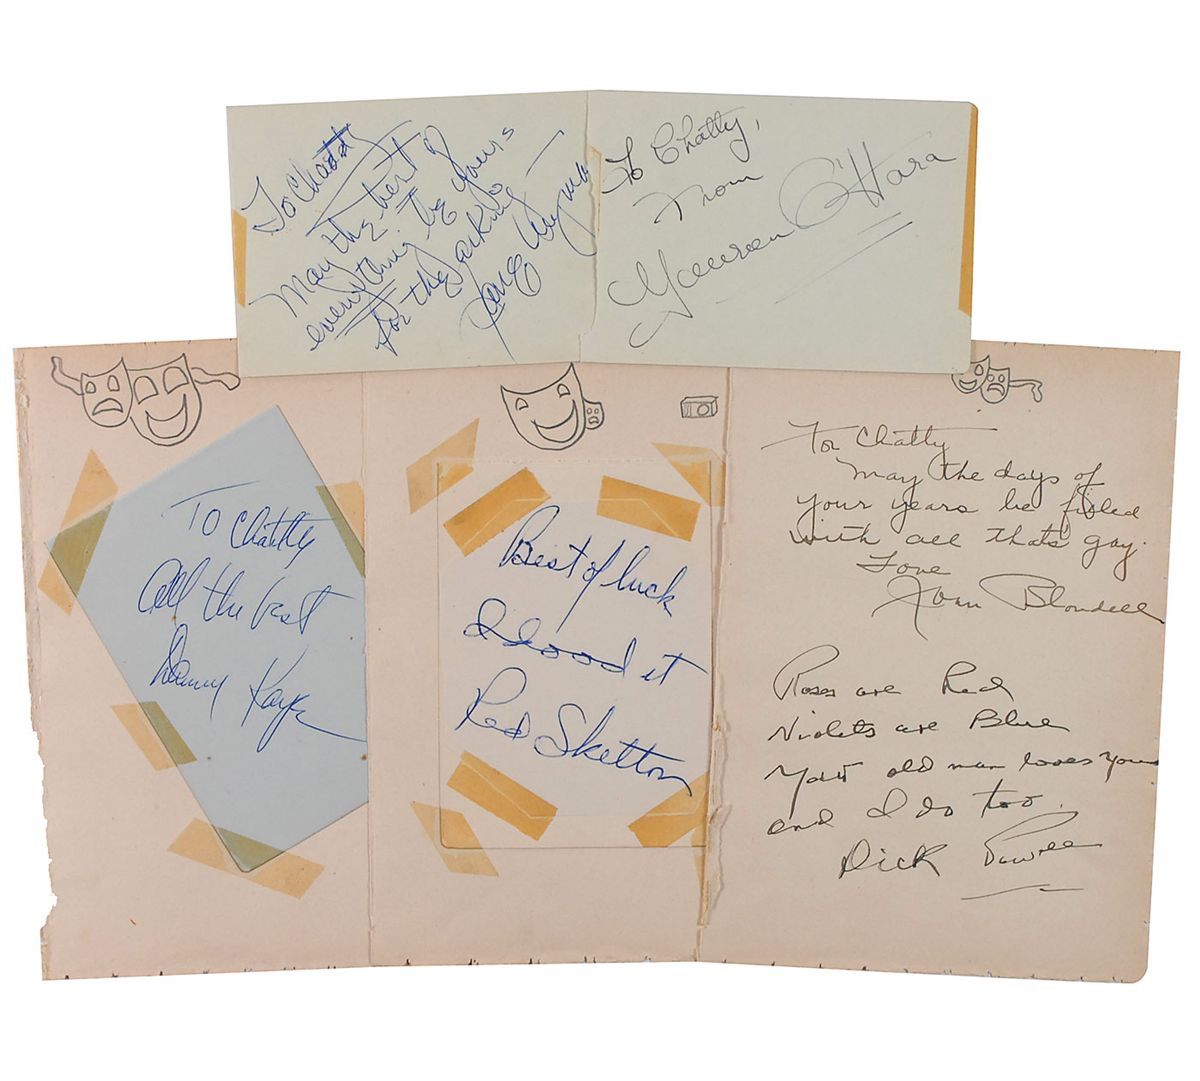 To Chatty
May the best of
everything be yours
for the asking
Jane Wyman
To Chatty,
From
Maureen O'Hara
To Chatty
All the best
Danny Kaye
Best of luck
I dood it
Red Skelton
For Chatty
May the days of
your years be filled
with all that's gay.
Love
Joan Blondell
Roses are Red
Violets are Blue
Your old man loves you
and I do too.
Dick Powell